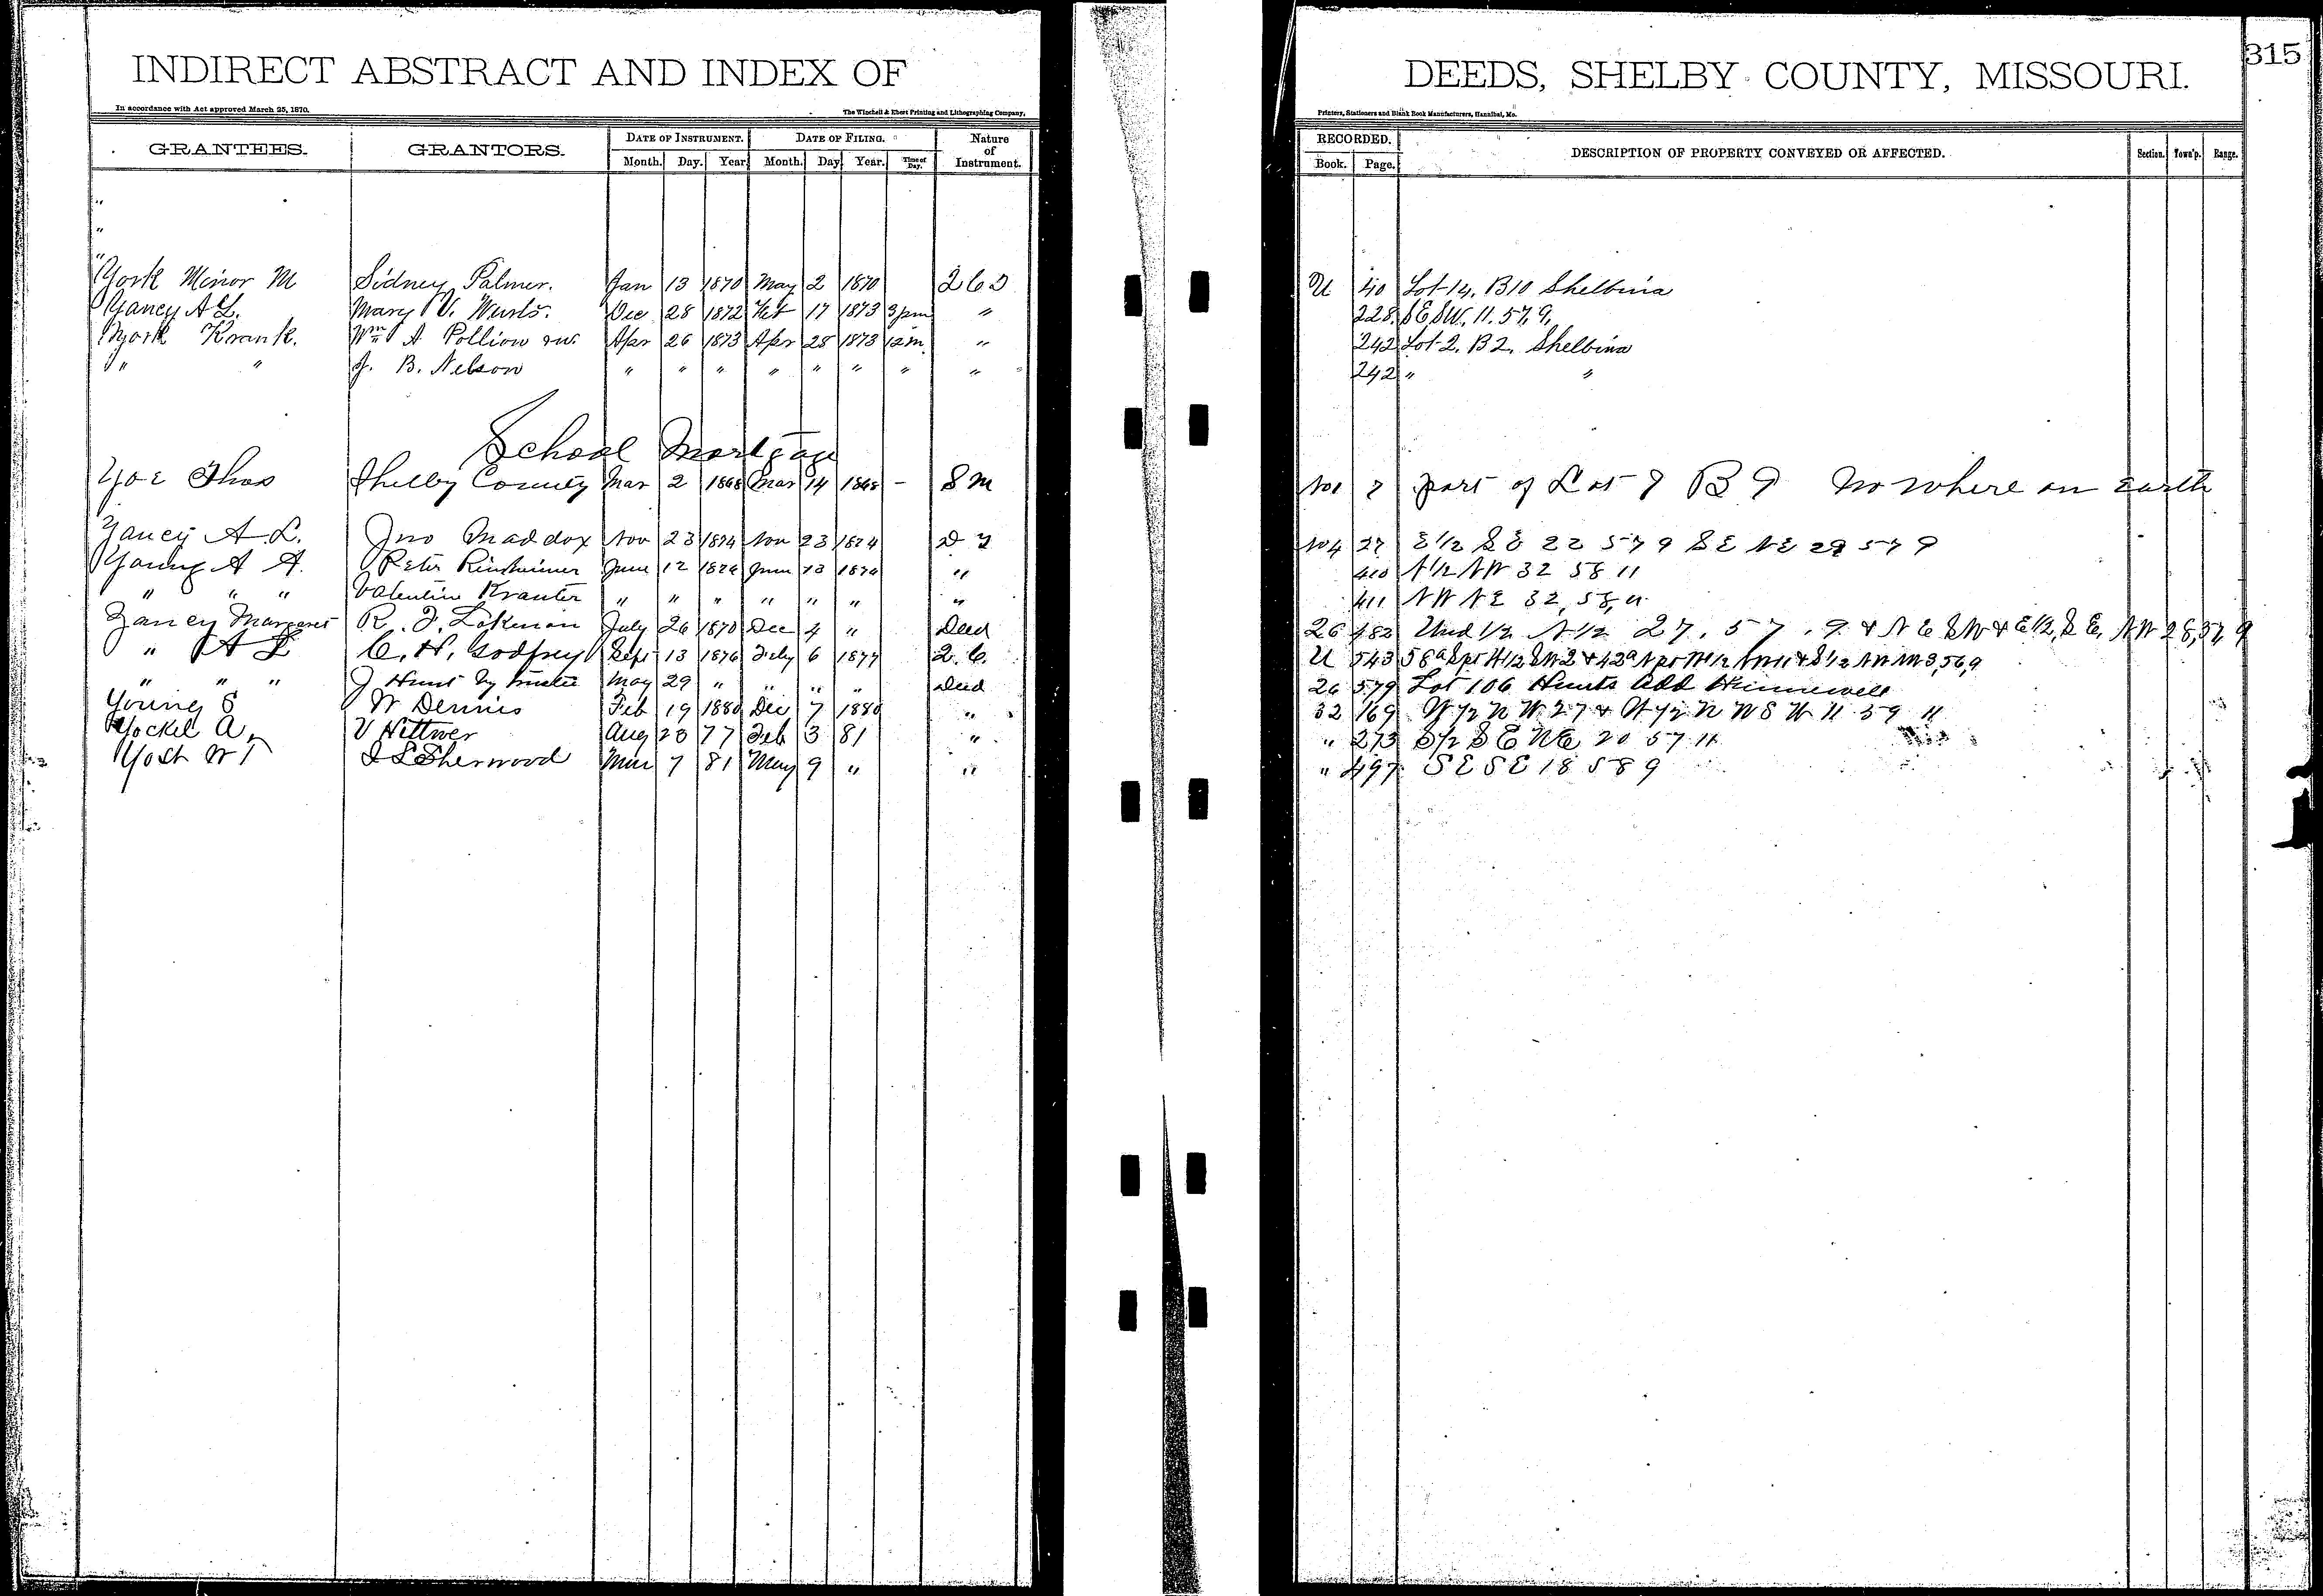 INDIRECT ABSTRACT AND INDEX OF DEEDS, SHELBY COUNTY, MISSOURI. 315
In accordance with Act approved March 25, 1870. The Winchell & Ebert Printing and Lithographing Company, Printers, Stationers and Blank Book Manufacturers, Hannibal, Mo.
GRANTEES. GRANTORS. DATE OF INSTRUMENT. DATE OF FILING. Nature of Instrument. RECORDED. DESCRIPTION OF PROPERTY CONVEYED OR AFFECTED. Section. Town'p. Range.
Month. Day. Year. Month. Day. Year. Time of Day. Book. Page.
"
"
"
York Minor M Sidney Palmer. Jan 13 1870 May 2 1870 U 40 Lot 14. B10 Shelbina
Yancy A L. Mary V. Dec 28 1872 Feb 17 1873 3pm " 228. SE SW. 11. 57. 9.
York Frank. Wm A Apr 26 1873 Apr 28 1873 12m. " 242 Lot 2. B2. Shelbina
" " J. B. Nelson " " " " " " " " 242 " "
School Mortgage
Yoe Thos Shelby County Mar 2 1868 Mar 14 1868 - S M No1 7 part of Lot B 9 No where on Earth
Yancy A L. Jno Maddox Nov 23 1874 Nov 23 1874 No4 27 E 1/2 SE 22 57 9 SE NE 29 57 9
Young A A. Peter June 12 June 13 " 410 N 1/2 NW 32 58 11
" " " Valentin Krauter " " " " " " " 411 NW NE 32, 58, 11
Yancy Margaret R. F. Lakenan July 26 1870 Dec 4 " Deed 26 482 Und 1/2 N 1/2 27. 57. 9 & NE SW & E 1/2, SE, NW 28, 57, 9
" A L C. H. Godfrey Sept 13 1876 July 6 1877 2. C. U 543
" " " J Hunt by trustee May 29 " " " " Deed 26 579 Lot 106 Hunts Add Hunnewell
Young S W Dennis Feb 19 1880 Dec 7 1880 " 32 169 W 1/2 N W 27 & W 1/2 N W S W 11 59 11
Yockel A, V Wittwer Aug 23 77 Feb 3 81 " " 273 S 1/2 S E NE 20 57 11
Yost W T I L Sherwood Mar 7 81 May 9 " " " 497 S E S E 18 58 9